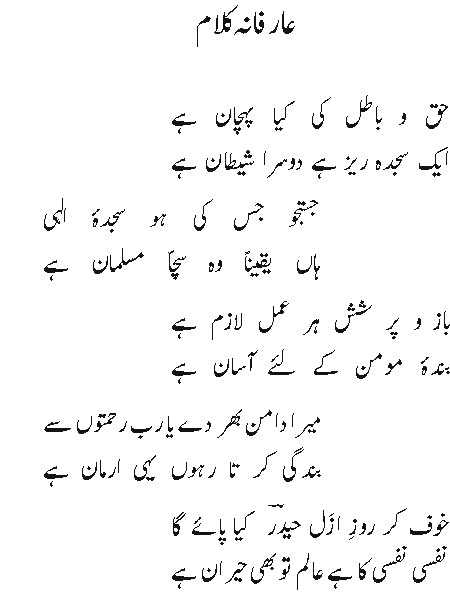 عارفانہ کلام
حق و باطل کی کیا پہچان ہے
ایک سجدہ ریز ہے دوسرا شیطان ہے
جستجو جس کی ہو سجدۂ الٰہی
ہاں یقیناً وہ سچّا مسلمان ہے
باز و پر شش ہر عمل لازم ہے
بندۂ مومن کے لئے آسان ہے
میرا دامن بھر دے یارب رحمتوں سے
بندگی کر تا رہوں یہی ارمان ہے
خوف کر روزِ ازَل حیدرؔ کیا پائے گا
نفسی نفسی کا ہے عالم تو بھی حیران ہے